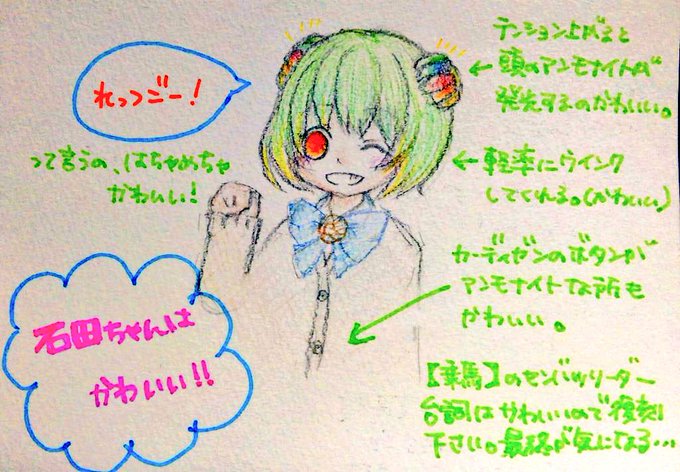 れっつごー!
って言うの、はちゃめちゃ
かわいい!
石田ちゃんは
かわいい!!
テンション上がると
頭のアンモナイトが
発光するのかわいい。
軽率にウインク
してくれる。(かわいい)
カーディガンのボタンが
アンモナイトな所も
かわいい。
【乗馬】のセンバツリーダー
台詞はかわいいので復刻
下さい。最終が気になる…